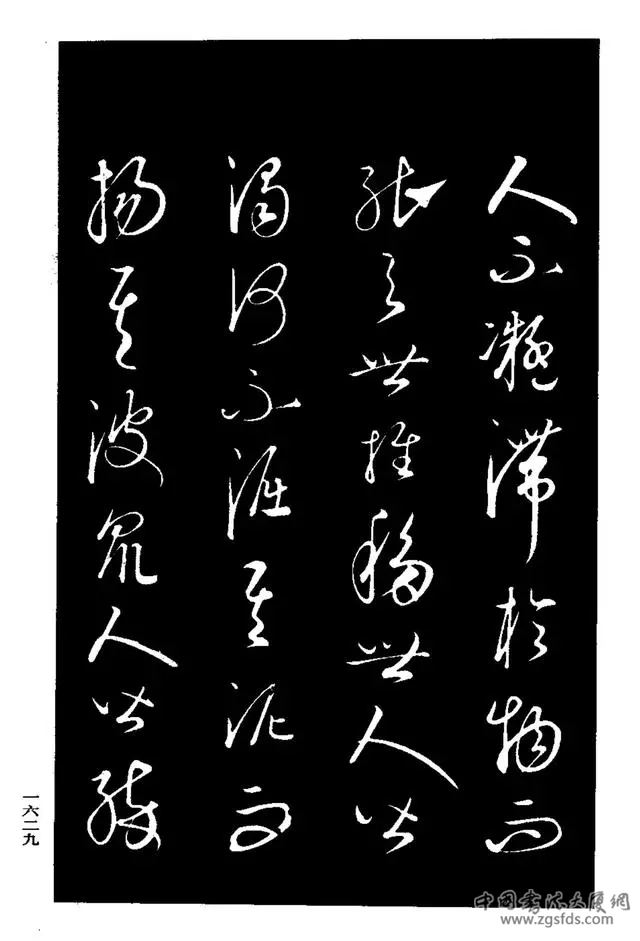 人不凝滞於物而
能与世推移世人皆
濁何不淈其泥而
揚其波衆人皆醉
一六二九
中國書法大厦網
www.zgsfds.com